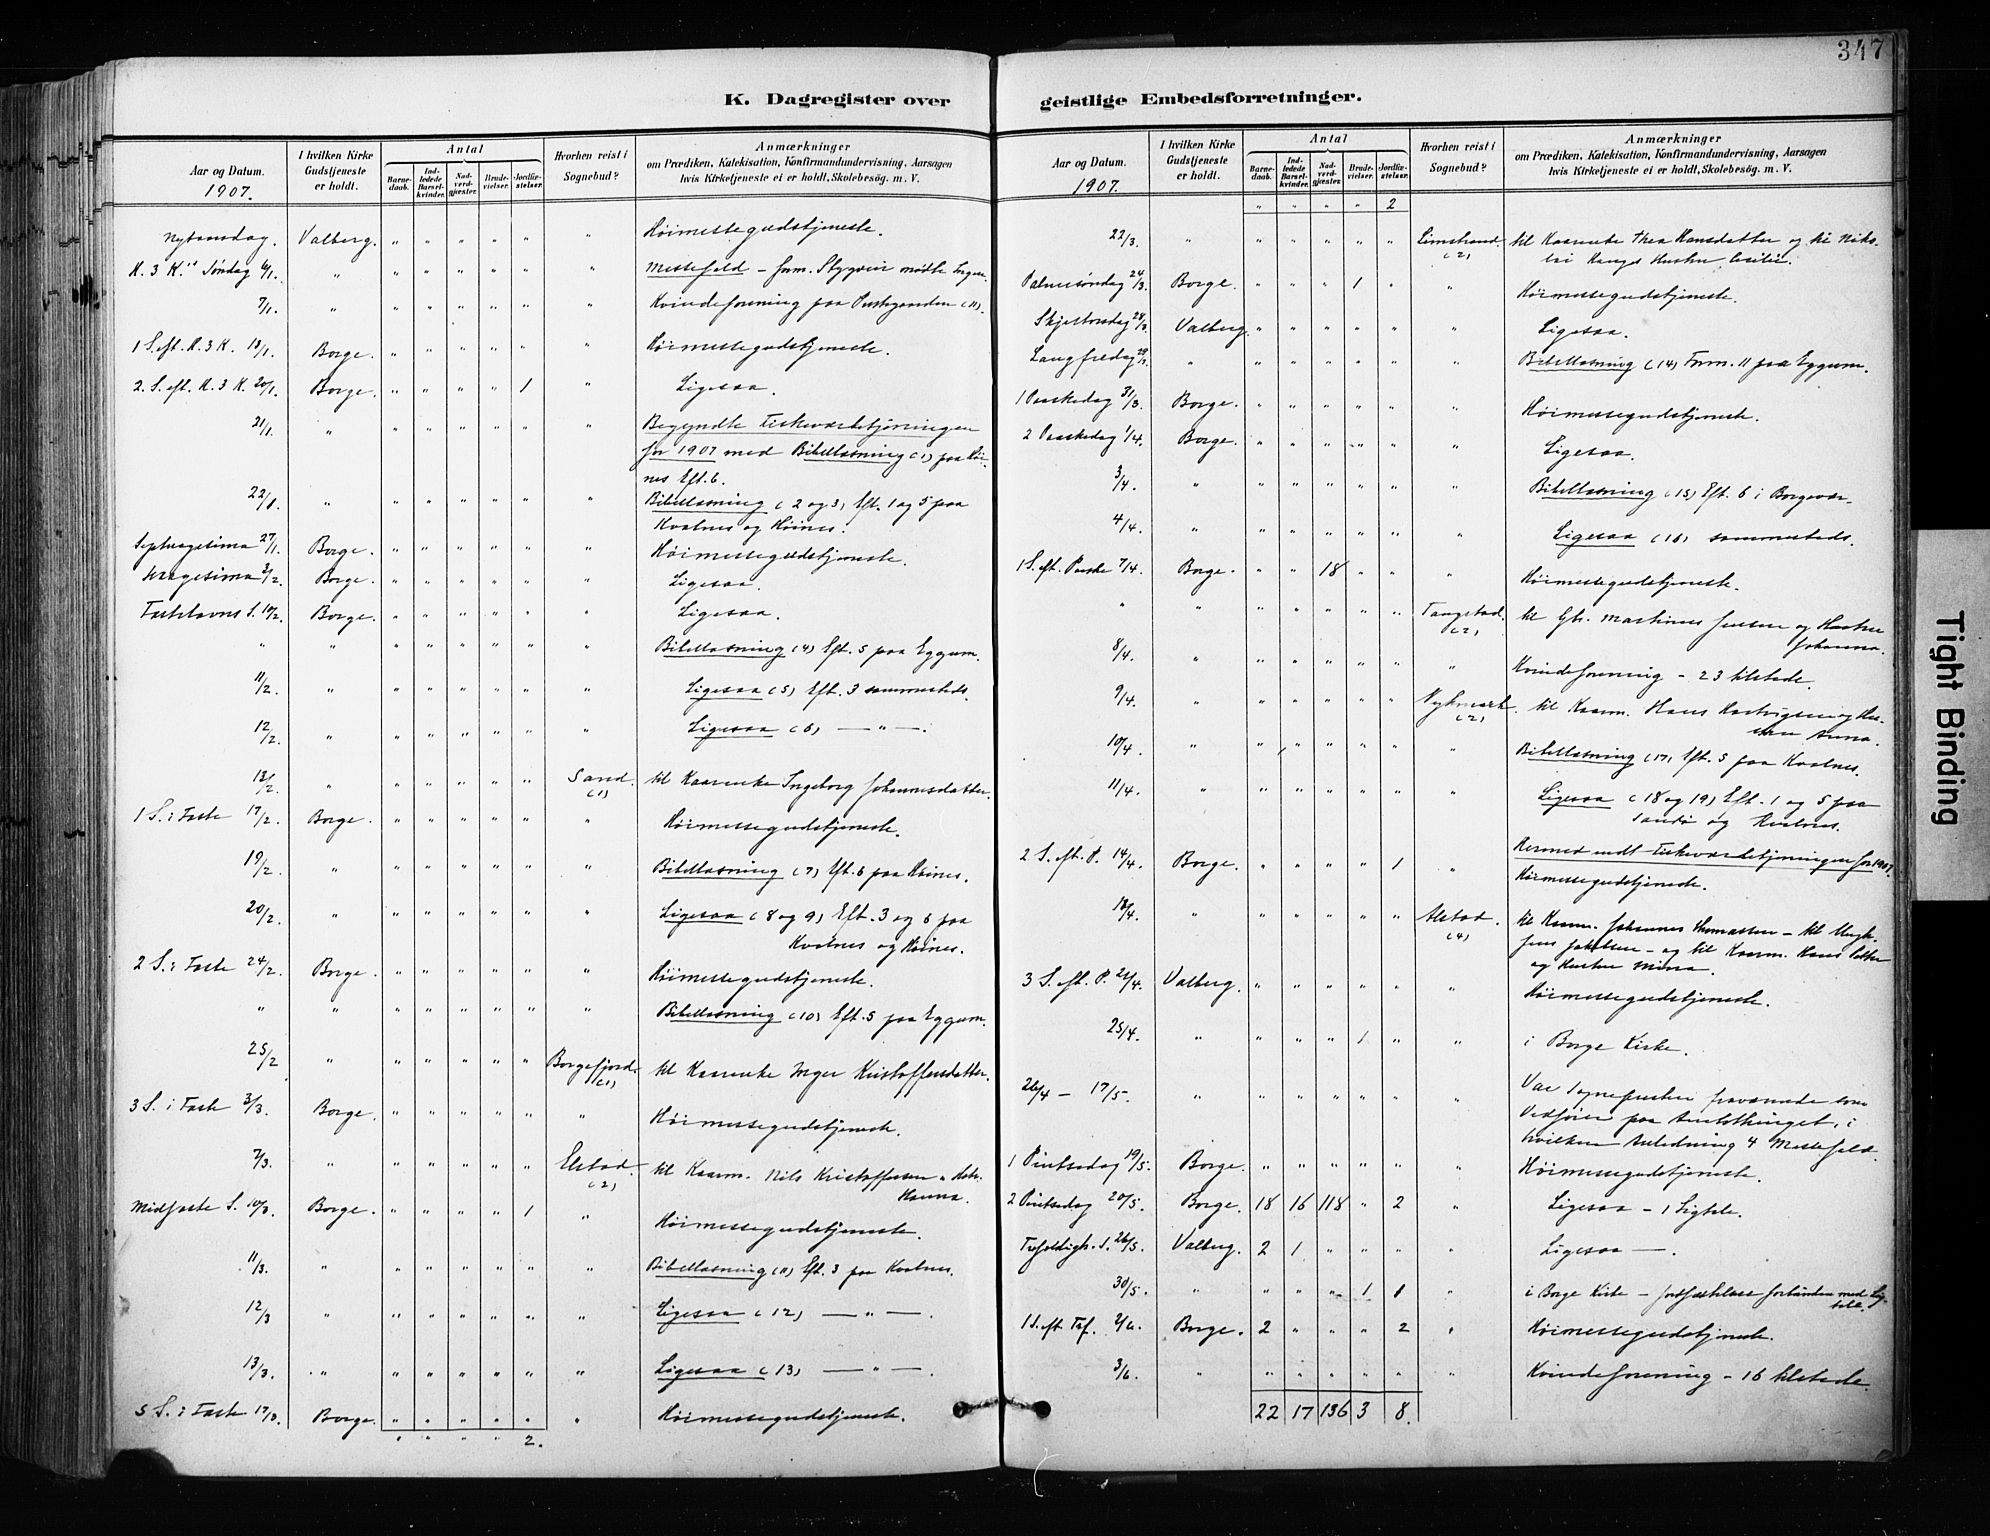 347
K. Dagregister over geistlige Embedsforretninger.
Aar og Datum. 1907.
I hvilken Kirke Gudstjeneste er holdt.
Antal
Barnedaab.
Indledede Barselkvinder.
Nadverdgjester.
Brudevielser.
Jordfæstelser.
Hvorhen reist i Sognebud?
Anmærkninger
om Prædiken, Katekisation, Konfirmandundervisning, Aarsagen
hvis Kirketjeneste ei er holdt, Skolebesøg. m. V.
Nytaarsdag. Valberg. " " " " " " Høimessegudstjeneste.
H. 3 K. Søndag 6/1. " " " " " " " Messefald –
7/1. " " " " " " " Kvindeforening paa Prestegaarden (11).
1 S. eft. H. 3 K. 13/1. Borge. " " " " " " Høimessegudstjeneste.
2. S. eft. H. 3 K. 20/1. Borge. " " " " 1 " Ligesaa.
21/1. " " " " " " " Begyndte Fiskeværbetjeningen
for 1907 med Bibellæsning (1) paa Høi-
nes Eft. 6.
22/1. " " " " " " " Bibellæsning (2 og 3) Eft. 1 og 5 paa
Kvalnes og Høines.
Septuagesima 27/1. Borge. " " " " " " Høimessegudstjeneste.
3/2. Borge. " " " " " " Ligesaa.
Fastelavns S. 10/2. Borge. " " " " " " Ligesaa.
" " " " " " " " Bibellæsning (4) Eft. 5 paa Eggum.
11/2. " " " " " " " Ligesaa (5) Eft. 3 sammesteds.
12/2. " " " " " " " Ligesaa (6) — " — .
13/2. " " " " " " Sand. (1) til Kaarenke Ingeborg Johannesdatter.
1 S. i Faste 17/2. Borge. " " " " " " Høimessegudstjeneste.
19/2. " " " " " " " Bibellæsning (7) Eft. 6 paa Høines.
20/2. " " " " " " " Ligesaa (8 og 9) Eft. 3 og 6 paa
Kvalnes og Høines.
2 S. i Faste 24/2. Borge. " " " " " " Høimessegudstjeneste.
" " " " " " " " Bibellæsning (10) Eft. 5 paa Eggum.
25/2 " " " " " " Borgefjord. (1) til Kaarenke Inger Kristoffersdatter.
3 S. i Faste 3/3. Borge. " " " " " " Høimessegudstjeneste.
7/3. " " " " " " Elstad. (2) til Kaarm. Nils Kristoffersen
Hanna.
Midfaste S. 10/3. Borge. " " " " 1 " Høimessegudstjeneste.
11/3. " " " " " " " Bibellæsning (11) Eft. 3 paa Kvalnes.
12/3 " " " " " " " Ligesaa (12) — " — .
13/3. " " " " " " " Ligesaa (13) — " — .
5 S. i Faste 17/3. Borge. " " " " " " Høimessegudstjeneste.
" " " " 2.
Aar og Datum. 1907.
I hvilken Kirke Gudstjeneste er holdt.
Antal
Barnedaab.
Indledede Barselkvinder.
Nadverdgjester.
Brudevielser.
Jordfæstelser.
Hvorhen reist i Sognebud?
Anmærkninger
om Prædiken, Katekisation, Konfirmandundervisning, Aarsagen
hvis Kirketjeneste ei er holdt, Skolebesøg. m. V.
" " " " 2
22/3. " " " " " " Limstrand (2) til Kaarenke Thea Hansdatter og til Niko-
lai Hustru
Palmesøndag 24/3. Borge. " " " 1 " " Høimessegudstjeneste.
Skjertorsdag 28/3. Valberg. " " " " " " Ligesaa.
Langfredag 29/3. " " " " " " " Bibellæsning (14) Form. 11 paa Eggum.
1 Paaskedag 31/3. Borge. " " " " " " Høimessegudstjeneste.
2 Paaskedag 1/4. Borge. " " " " " " Ligesaa.
3/4. " " " " " " " Bibellæsning (15) Eft. 6 i Borgevær.
4/4. " " " " " " " Ligesaa (16) sammesteds.
1 S. eft. Paaske 7/4. Borge. " " 18 " " " Høimessegudstjeneste.
" " " " " " " Tangstad (2) til Gbr. Martinus Jensen og Hustru
Johanna.
8/4. " " " " " " " Kvindeforening – 23 tilstede.
9/4. " " " " " " Nykmark (2) til Kaarm. Hans Hartvigsen og Hu-
stru Anna.
10/4. " " " " " " " Bibellæsning (17) Eft. 5 paa Kvalnes.
11/4. " " " " " " " Ligesaa (18 og 19) Eft. 1 og 5 paa
Sandø og Kvalnes.
Hermed endt Fiskeværbetjeningen for 1907.
2 S. eft. P. 14/4. Borge. " " " " 1 " Høimessegudstjeneste.
18/4. " " " " " Alstad. (4) til Kaarm. Johannes Thomassen – til Ungk.
Jens Jakobsen – og til Kaarm. Hans Petter
og Hustru Mina.
3 S. eft. P. 21/4. Valberg. " " " " " " Høimessegudstjeneste.
25/4. " " " " 1 " " i Borge Kirke.
26/4 — 17/5. " " " " " " " Var Sognepresten fraværende som
Ordfører paa Amtsthinget, i
hvilken Anledning 4 Messefald.
1 Pintsedag 19/5. Borge. " " " " " " Høimessegudstjeneste.
2 Pintsedag 20/5. Borge. 18 16 118 " 2 " Ligesaa – 1 Ligtale.
Trefoldigh. S. 26/5. Valberg. 2 1 " " " " Ligesaa — .
30/5. " " " " 1 1 " i Borge Kirke – Jordfæstelsen forbunden med Lig-
tale.
1 S. eft. Tref. 2/6. Borge. 2 " " " 2 " Høimessegudstjeneste.
3/6. " " " " " " " Kvindeforening – 16 tilstede.
22 17 136 3 8.
Tight Binding